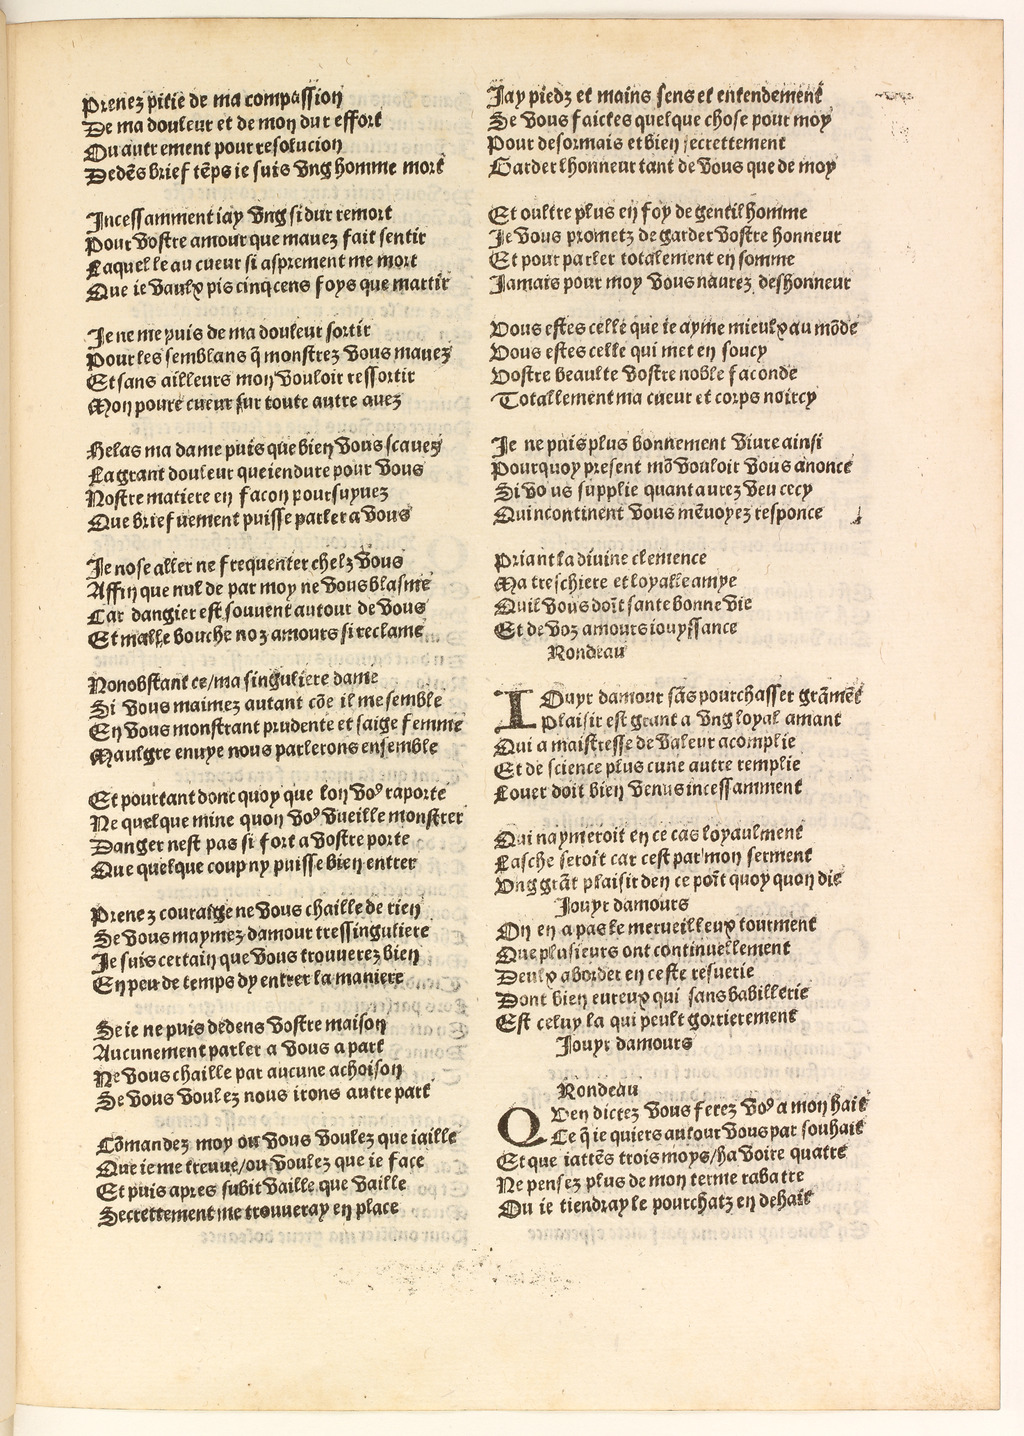 Prenez pitie de ma compassion
De ma douleur et de mon dur effort
Ou autrement pour resolucion
Dedẽs brief tẽps ie suis vng homme mort
Incessamment iay vng si dur remort
Pour vostre amour que mauez fait sentir
Laquelle au cueur si asprement me mort
Que ie vaulx pis cinq cens foys que martir
Je ne me puis de ma douleur sortir
Pour les semblans q̃ monstrez vous mauez
Et sans ailleurs mon vouloir ressortir
Mon poure cueur sur toute autre auez
Helas ma dame puis que bien vous scauez
La grant douleur que iendure pour vous
Nostre matiere en facon poursuyuez
Que briefuement puisse parler a vous
Je nose aller ne frequenter chelz vous
Affin que nul de par moy ne vous blasme
Car dangier est souuent autour de vous
Et malle bouche noz amours si reclame
Nonobstant ce/ma singuliere dame
Si vous maimez autant cõe il me semble
En vous monstrant prudente et saige femme
Maulgre enuye nous parlerons ensemble
Et pourtant donc quoy que lon voꝰ raporte
Ne quelque mine quon voꝰ vueille monstrer
Danger nest pas si fort a vostre porte
Que quelque coup ny puisse bien entrer
Prenez couraige ne vous chaille de rien
Se vous maymez damour tressinguliere
Je suis certain que vous trouuerez bien
En peu de temps dy entrer la maniere
Se ie ne puis dedens vostre maison
Aucunement parler a vous a part
Ne vous chaille par aucune achoison
Se vous voulez nous irons autre part
Cõmandez moy ou vous voulez que iaille
Que ie me treuue/ou voulez que ie face
Et puis apres subit vaille que vaille
Secrettement me trouueray en place
Jay piedz et mains sens et entendement
Se vous faictes quelque chose pour moy
Pour desormais et bien secrettement
Garder lhonneur tant de vous que de moy
Et oultre plus en foy de gentil homme
Je vous prometz de garder vostre honneur
Et pour parler totalement en somme
Jamais pour moy vous naurez deshonneur
Vous estes celle que ie ayme mieulx au mõde
Vous estes celle qui met en soucy
Vostre beaulte vostre noble faconde
Totallement ma cueur et corps noircy
Je ne puis plus bonnement viure ainsi
Pourquoy present mõ vouloir vous anonce
Si vous supplie quant aurez veu cecy
Quincontinent vous mẽuoyez responce
Priant la diuine clemence
Ma treschiere et loyalle amye
Quil vous doĩt sante bonne vie
Et de voz amours iouyssance
Rondeau
IOuyr damour sãs pourchasser grãmẽt
Plaisir est grant a vng loyal amant
Qui a maistresse de valeur acomplie
Et de science plus cune autre remplie
Louer doit bien venus incessamment
Qui naymeroit en ce cas loyaulment
Lasche seroit car cest par mon serment
Vng grãt plaisir den ce poĩt quoy quon die
Jouyr damours
On en a pas le merueilleux tourment
Que plusieurs ont continuellement
Deulx aborder en ceste resuerie
Dont bien eureux qui sans babillerie
Est celuy la qui peult gorrierement
Jouyr damours
Rondeau
QVen dictez vous ferez voꝰ a mon hait
Ce q̃ ie quiers autour vous par souhait
Et que iattẽs trois moys/ha voire quatre
Ne pensez plus de mon terme rabatre
Ou ie tiendray le pourchatz en dehait